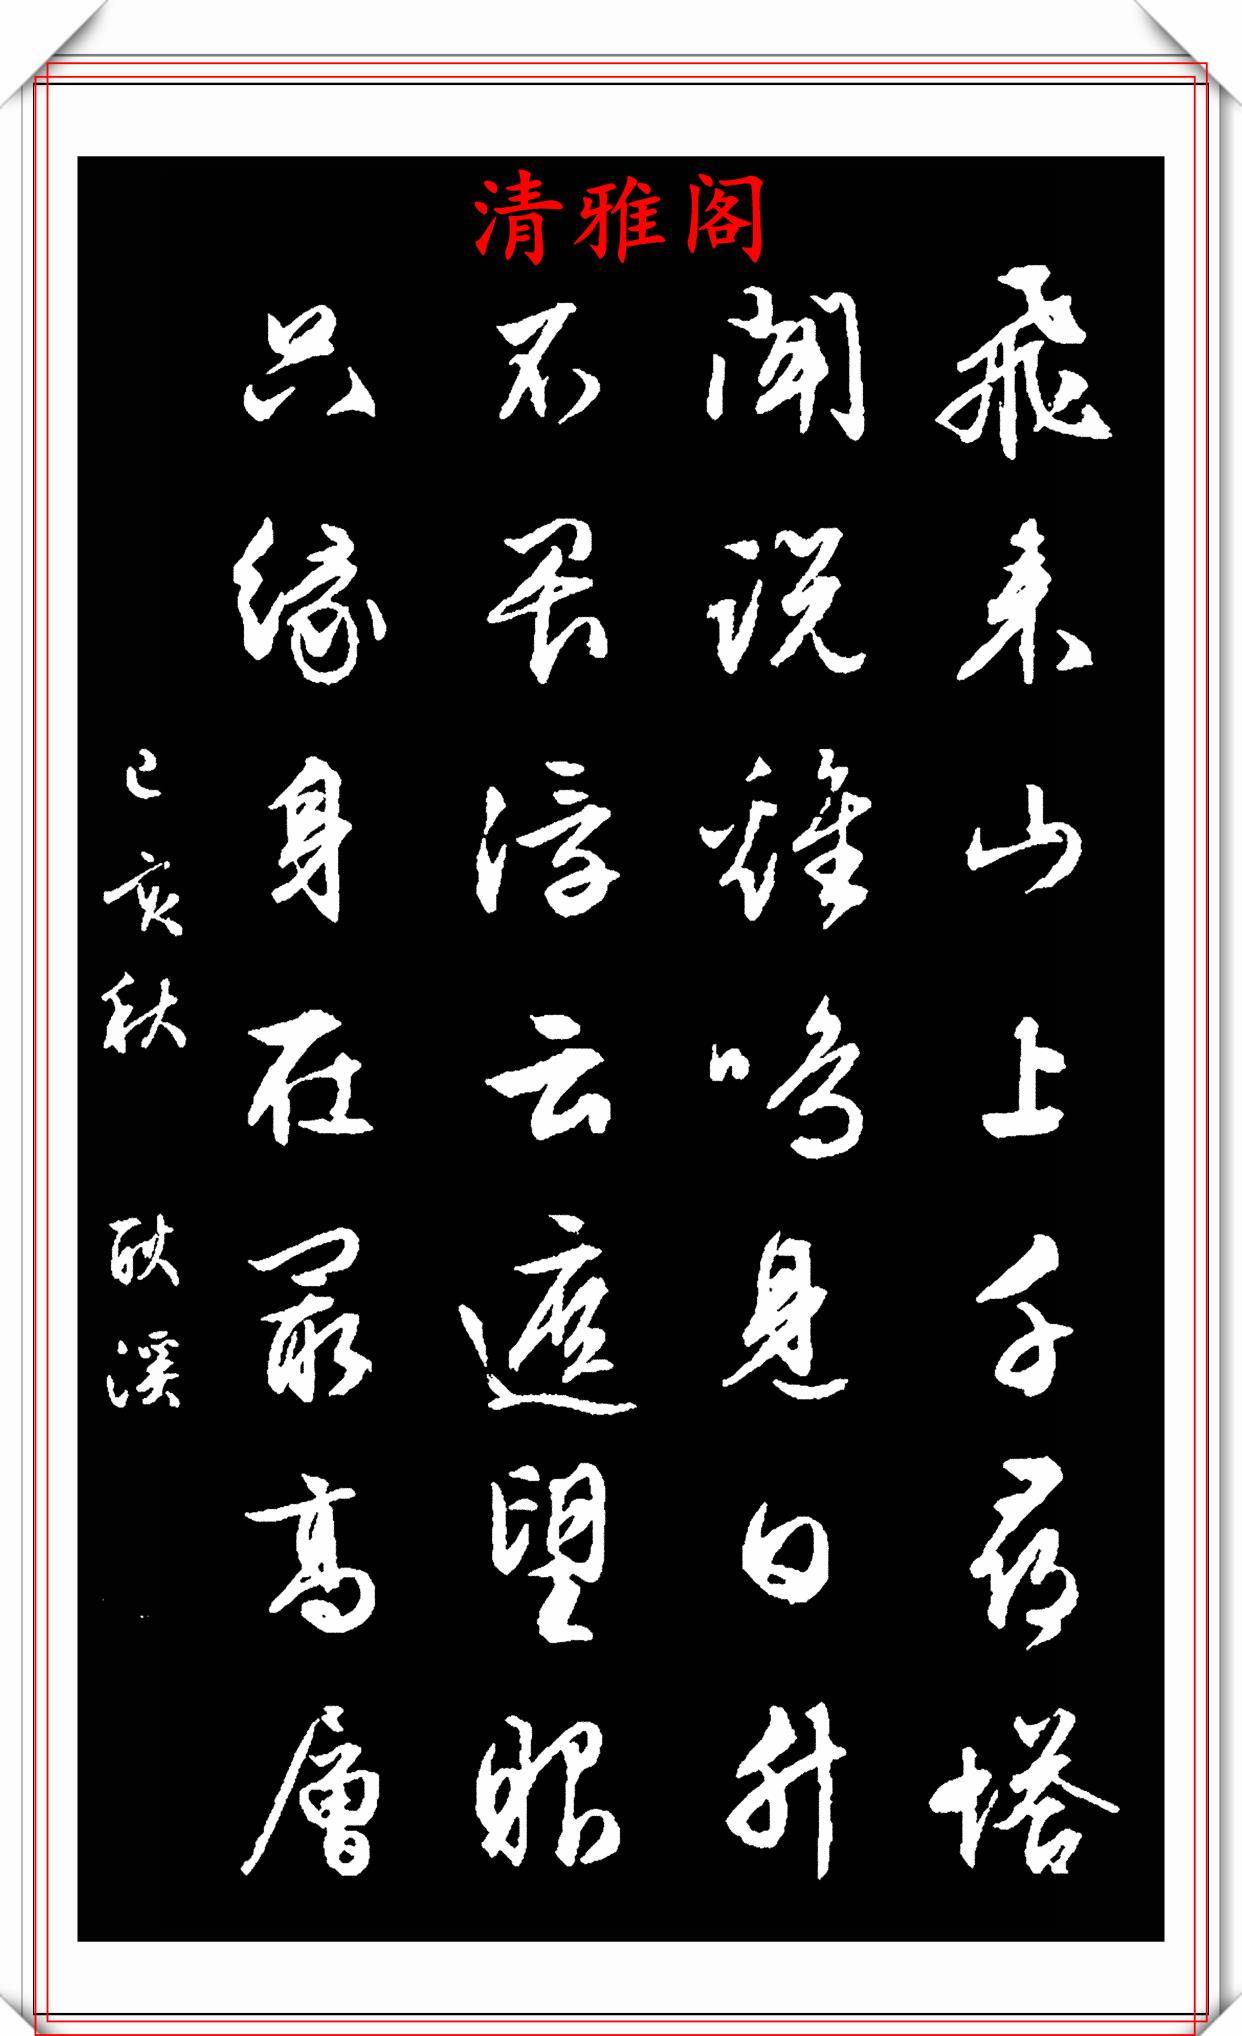 清雅阁
飛来山上千尋塔
聞说雞鸣見日升
不畏浮云遮望眼
只缘身在最高層
己亥秋
溪